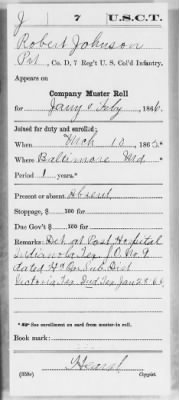 J | 7 | U.S.C.T.
Robert Johnson
Pvt, Co. D, 7 Reg't U. S. Col'd Infantry.
Appears on
Company Muster Roll
for Jany & Feby, 1866.
Joined for duty and enrolled:
When Mch 10, 1865*
Where Baltimore Md
Period 1 years.*
Present or absent Absent
Stoppage, $ 100 for
Due Gov't $ 100 for
Remarks: Det. at Post Hospital
Indianola Tex. S.O. No. 9
dated Hd Qrs Sub. Dist
Victoria Tex. Jan 23, 66.
*See enrollment on card from muster-in roll.
Book mark:
(358c) Copyist.